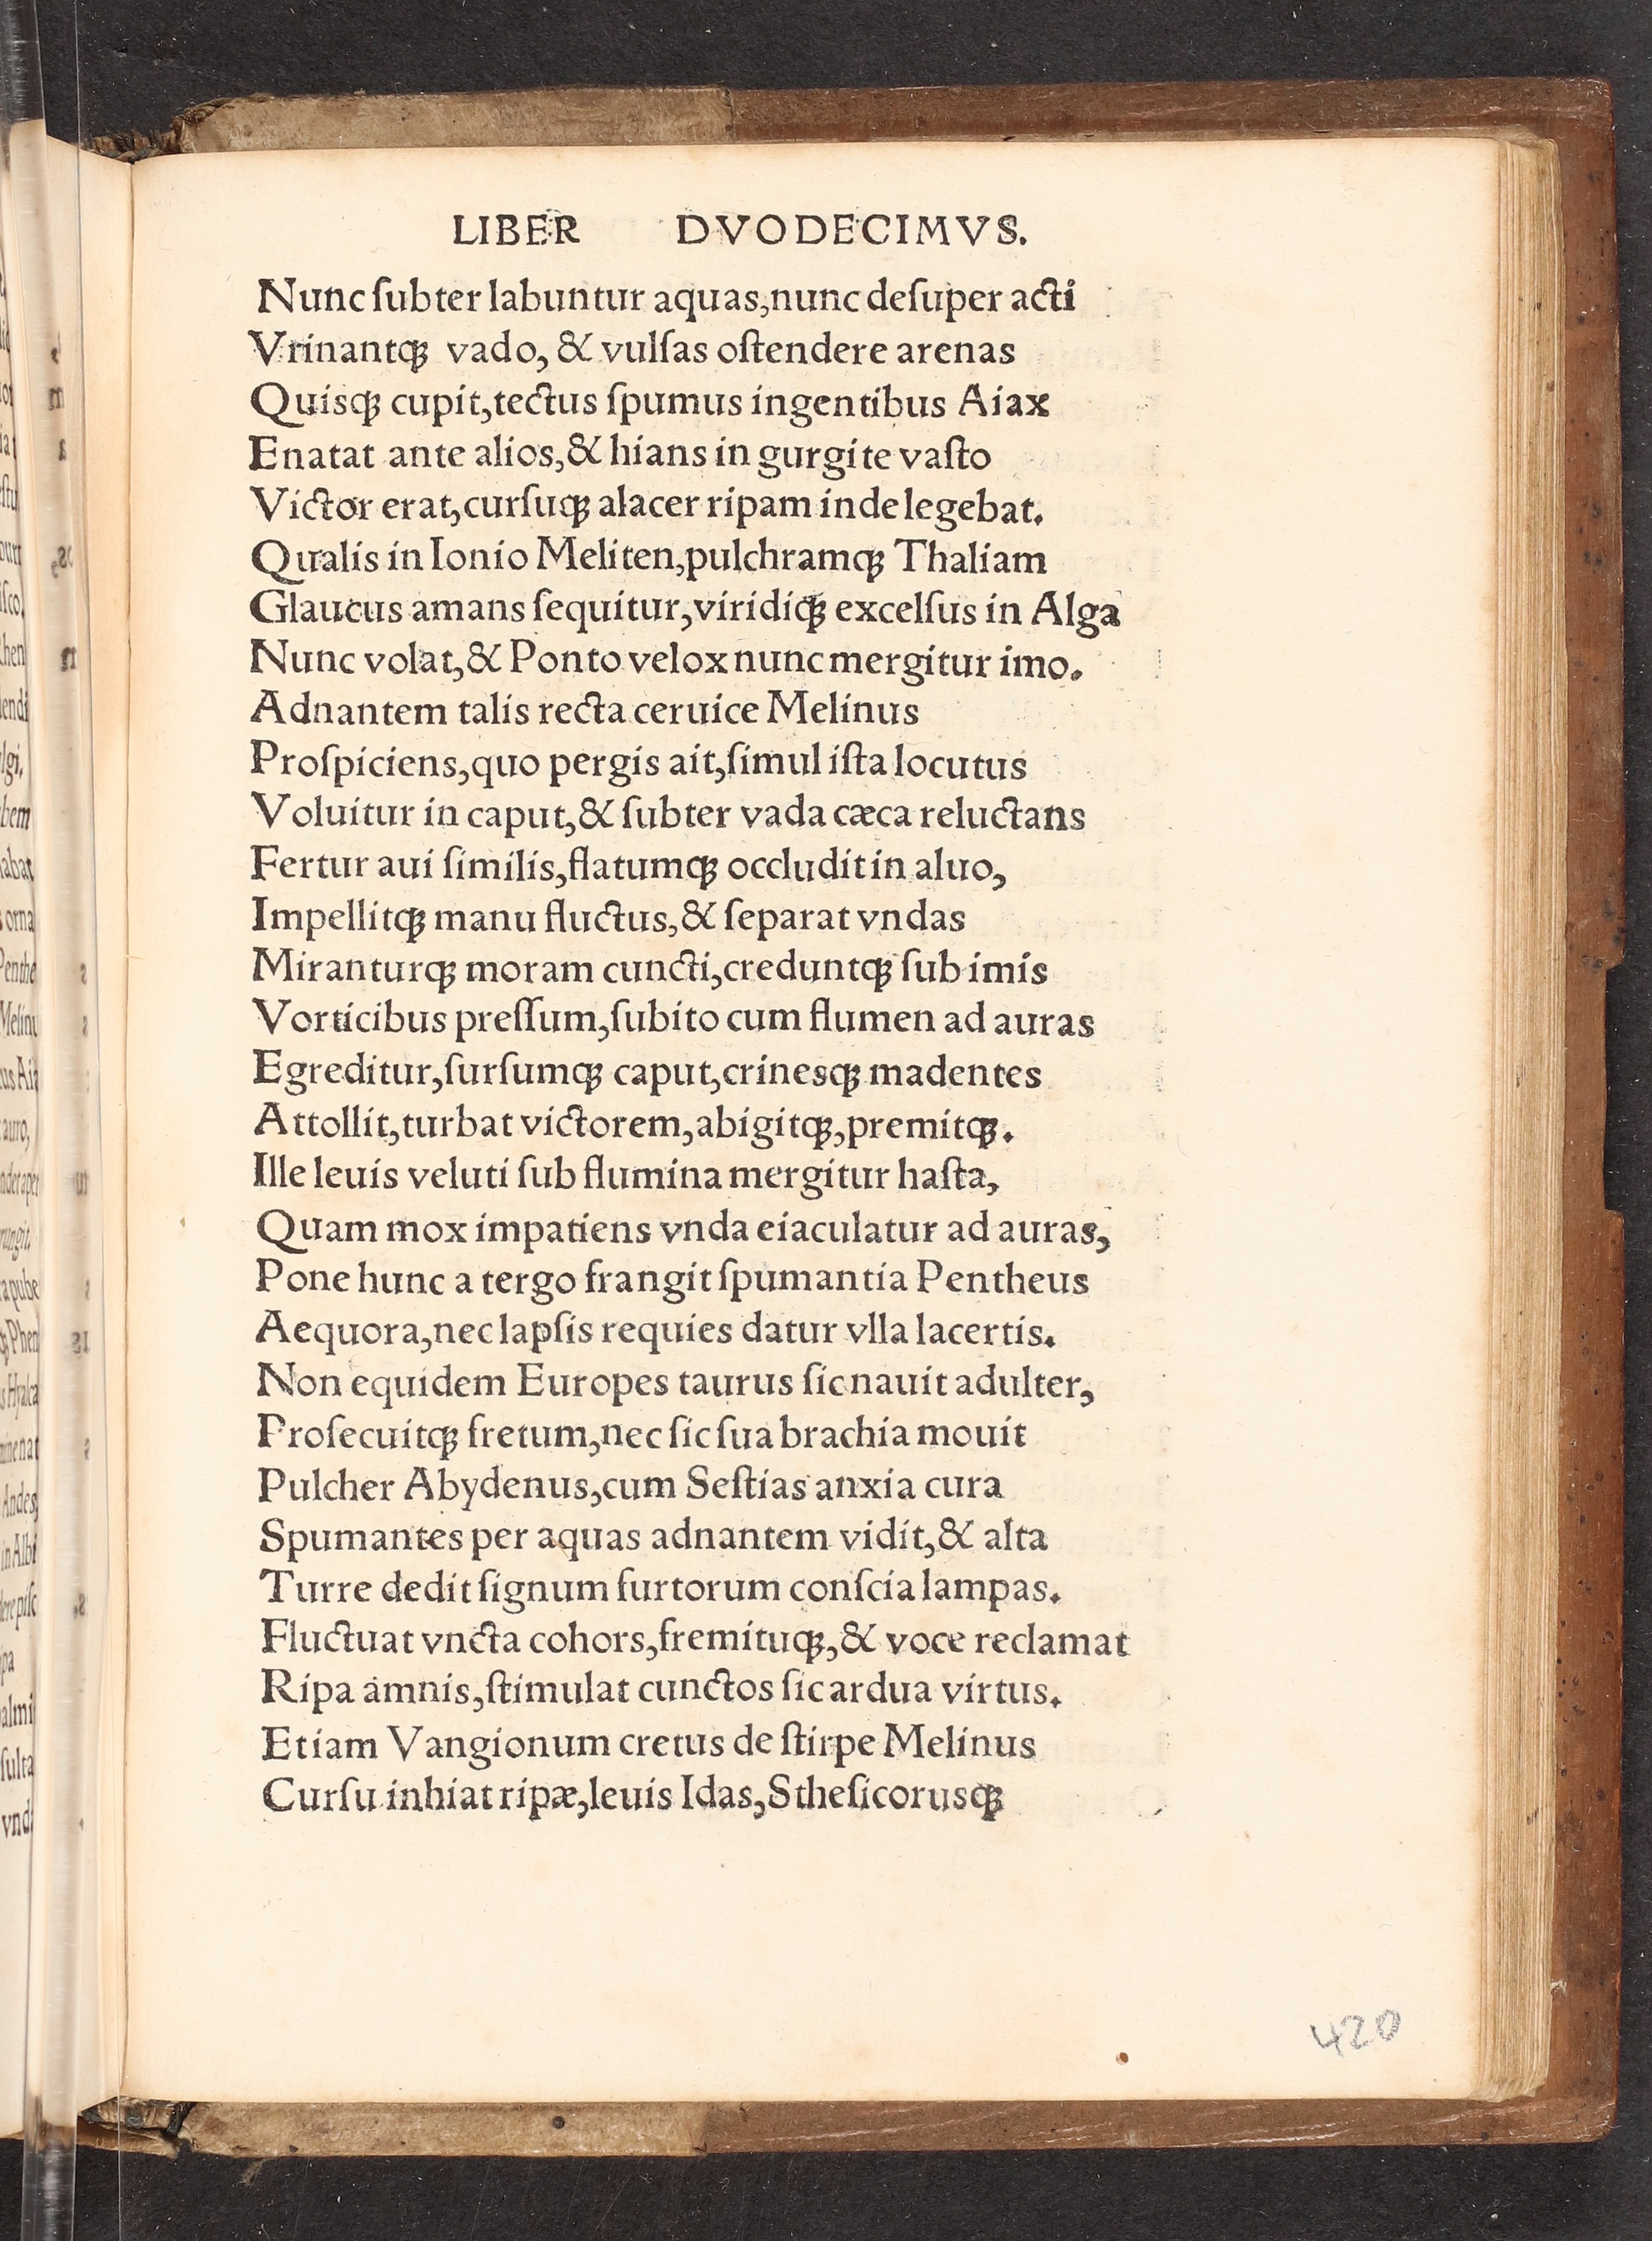 LIBER DVODECIMVS.
Nunc ſubter labuntur aquas,nunc deſuper acti
Vrinantqꝫ vado, & vulſas oſtendere arenas
Quisqꝫ cupit,tectus ſpumus ingentibus Aiax
Enatat ante alios,& hians in gurgite vaſto
Victor erat,curſuqꝫ alacer ripam inde legebat.
Qualis in Ionio Meliten,pulchramqꝫ Thaliam
Glaucus amans ſequitur,viridiqꝫ excelſus in Alga
Nunc volat,& Ponto velox nunc mergitur imo.
Adnantem talis recta ceruice Melinus
Proſpiciens,quo pergis ait,ſimul iſta locutus
Voluitur in caput,& ſubter vada cæca reluctans
Fertur aui ſimilis,flatumqꝫ occludit in aluo,
Impellitqꝫ manu fluctus,& ſeparat vndas
Miranturqꝫ moram cuncti,creduntqꝫ ſub imis
Vorticibus preſſum,ſubito cum flumen ad auras
Egreditur,ſurſumqꝫ caput,crinesqꝫ madentes
Attollit,turbat victorem,abigitqꝫ,premitqꝫ.
Ille leuis veluti ſub flumina mergitur haſta,
Quam mox impatiens vnda eiaculatur ad auras,
Pone hunc a tergo frangit ſpumantia Pentheus
Aequora,nec lapſis requies datur vlla lacertis.
Non equidem Europes taurus ſic nauit adulter,
Proſecuitqꝫ fretum,nec ſic ſua brachia mouit
Pulcher Abydenus,cum Seſtias anxia cura
Spumantes per aquas adnantem vidit,& alta
Turre dedit ſignum furtorum conſcia lampas.
Fluctuat vncta cohors,fremituqꝫ,& voce reclamat
Ripa amnis,ſtimulat cunctos ſic ardua virtus.
Etiam Vangionum cretus de ſtirpe Melinus
Curſu inhiat ripæ,leuis Idas,Stheſicorusqꝫ
420